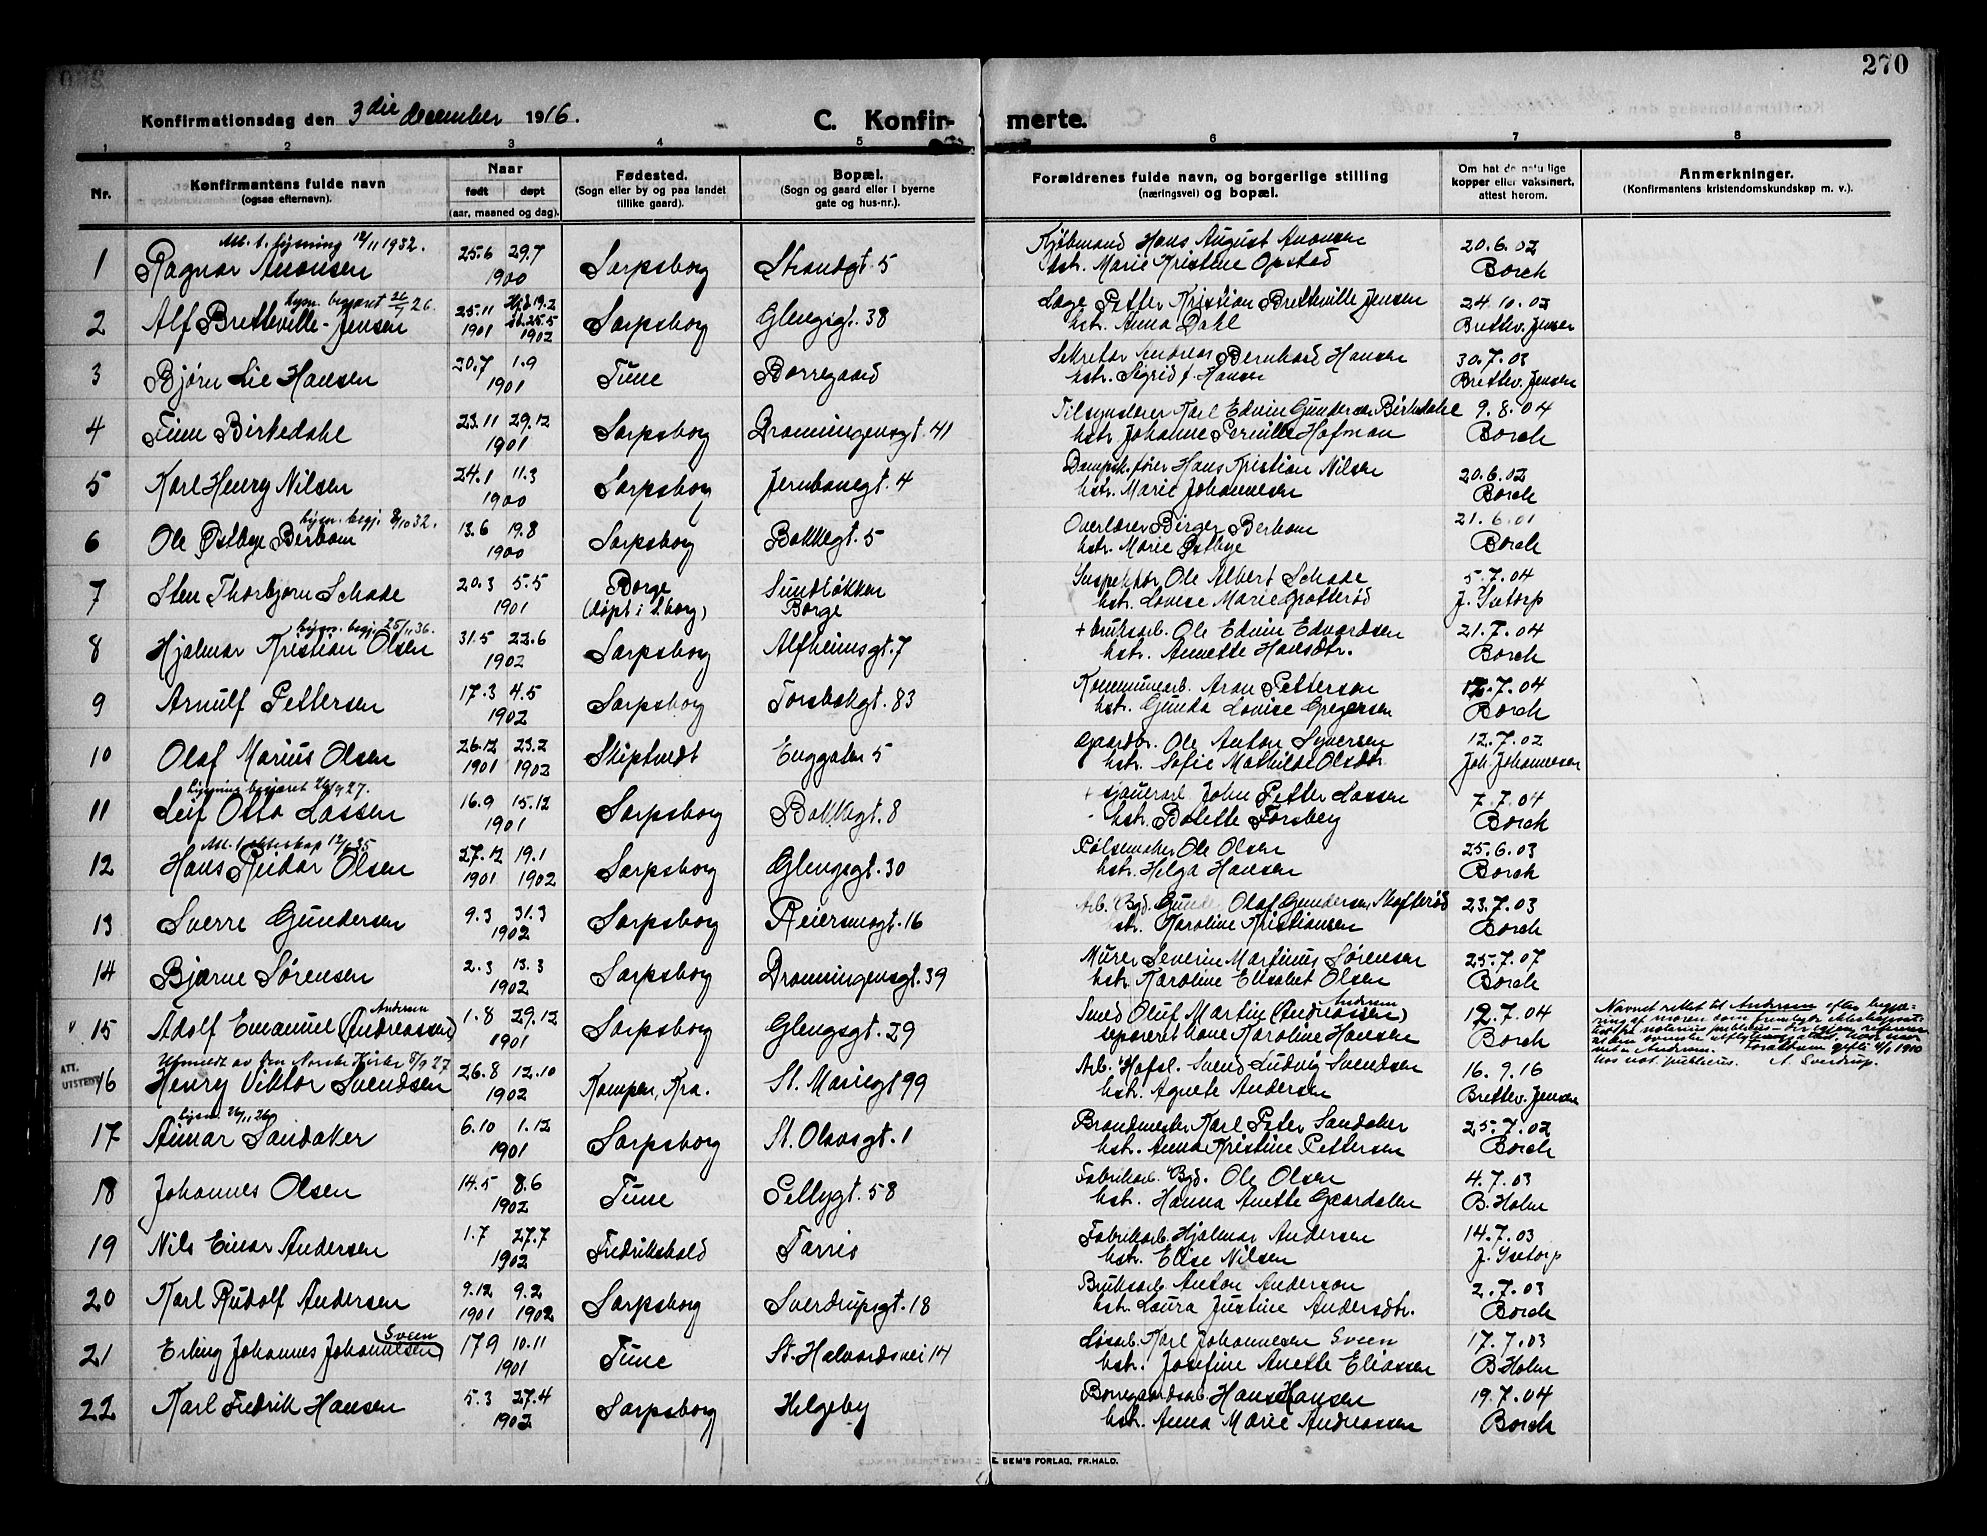 270
Konfirmationsdag den 3die december 1916.
C. Konfir- merte.
1 2 3 4 5 6 7 8
Nr. Konfirmantens fulde navn (ogsaa efternavn). Naar født døpt (aar, maaned og dag). Fødested. (Sogn eller by og paa landet tillike gaard). Bopæl. (Sogn og gaard eller i byerne gate og hus-nr.). Forældrenes fulde navn, og borgerlige stilling (næringsvei) og bopæl. Om hat de naturlige kopper eller vaksinert, attest herom. Anmerkninger. (Konfirmantens kristendomskundskap m. v.).
Att. t. lysning 12/11 1932.
1 Ragnar Anonsen 25.6 29.7 1900 Sarpsborg Strandgt. 5 Kjøbmand Hans August Anonsen 20.6.02
hstr. Marie Kristine Opstad Borch
lysn. begjæret 26/7 26.
2 Alf Bretteville-Jensen 25.11 1901 Hjd. 19.2 St. 25.5 1902 Sarpsborg Glengsgt. 38 Læge Petter Kristian Bretteville Jensen 24.10.02
hstr. Anna Dahl Brettev. Jensen
3 Bjørn Lie Hansen 20.7 1.9 1901 Tune Borregaard Sekretær Andreas Bernhard Hansen 30.7.03
hstr. Sigrid f. Hansen Brettev. Jensen
4 Finn Birkedahl 23.11 29.12 1901 Sarpsborg Dronningensgt. 41 Tilsynslærer Karl Edvin Gundersen Birkedahl 9.8.04
hstr. Johanne Pernille Hofman Borch
5 Karl Henry Nilsen 24.1 11.3 1900 Sarpsborg Jernbanegt. 4 Dampsk.fører Hans Kristian Nilsen 20.6.02
hstr. Marie Johannesen Borch
lysn. begj. 8/10 32.
6 Ole Østbye Berbom 13.6 19.8 1900 Sarpsborg Bakkegt. 5 Overlærer Birger Berbom 21.6.01
hstr. Marie Østbye Borch
7 Sten Thorbjørn Schade 20.3 5.5 1901 Borge (døpt i S.borg) Sundløkken Borge Inspektør Ole Albert Schade 5.7.04
hstr. Lovise Marie Grotterød J. Isetorp
lysn. begj. 25/11 36.
8 Hjalmar Kristian Olsen 31.5 22.6 1902 Sarpsborg Alfheimsgt. 7 + bruksarb. Ole Edvin Edvardsen 21.7.04
hstr. Annette Hansdtr. Borch
9 Arnulf Pettersen 17.3 4.5 1902 Sarpsborg Torsbekgt. 83 Kommunearb. Aron Petterson 12.7.04
hstr. Gunda Lovise Gregersen Borch
10 Olaf Marius Olsen 26.12 1901 23.2 1902 Skiptvedt Enggaten 5 Gaardbr. Ole Anton Syversen 12.7.02
hstr. Sofie Mathilde Olsdtr. Joh. Johannesen
lysning begjæret 26/9 27.
11 Leif Otto Lassen 16.9 15.12 1901 Sarpsborg Bakkegt. 8 + John Petter Lassen 7.7.04
hstr. Bolette Forsberg Borch
Att. t. ekteskap 12/6 35
12 Hans Reidar Olsen 27.12 1901 19.1 1902 Sarpsborg Glengsgt. 30 Pølsemaker Ole Olsen 25.6.03
hstr. Helga Hansen Borch
13 Sverre Gundersen 9.3 31.3 1902 Sarpsborg Reiersensgt. 16 Arb. v/Bgd. Olaf Gundersen Skofterød 23.7.03
hstr. Karoline Kristiansen Borch
14 Bjarne Sørensen 2.3 13.3 1902 Sarpsborg Dronningensgt. 39 Murer Severin Martinus Sørensen 25.7.07
hstr. Karoline Elisabet Olsen Borch
Andreæn
15 Adolf Emanuel (Andreassen) 1.8 29.12 1901 Sarpsborg Glengsgt. 29 Smed Oluf Martin (Andreassen) 12.7.04
separert kone Karoline Hansen Borch
Navnet rettet til efter begjæring af moren som
A. Sverdrup.
ATT. UTSTEDT
Utmeldt av Den Norske Kirke 5/9 27
16 Henry Viktor Svendsen 26.8 12.10 1902 Kampen, Kra. St. Mariegt 99 Arb. v/Hafsl. Svend Ludvig Svendsen 16.9.16
hstr. Agnete Andersen Brettev. Jensen
lysn. 26/11 26
17 Aimar Sandaker 6.10 1.12 1901 Sarpsborg St. Olavsgt. 1 Brandmester Karl Peter Sandaker 25.7.02
hstr. Anna Kristine Pettersen Borch
18 Johannes Olsen 14.5 8.6 1902 Tune Pellygt. 58 Fabrikarb. v/Bgd. Ole Olsen 4.7.03
hstr. Hanna Anette Gaardslen B. Holm
19 Nils Einar Andersen 1.7 27.7 1902 Fredrikshald Tarris Fabrikarb. Hjalmar Andersen 14.7.03
hstr. Elise Nilsen J. Isetorp
20 Karl Rudolf Andersen 9.12 1901 9.2 1902 Sarpsborg Sverdrupsgt. 18 Bruksarb. Anton Anderson 2.7.03
hstr. Laura Justine Andersdtr. Borch
Sveen
21 Erling Johannes Johannesen 17.9 10.11 1901 Tune St. Halvardsvei 14 Løsarb. Karl Johannesen Sveen 17.7.03
hstr. Josefine Anette Eliassen B. Holm
22 Karl Fredrik Hansen 5.3 27.4 1902 Sarpsborg Helgeby Borregaardsarb. Hans Hansen 19.7.04
hstr. Anna Marie Andreassen Borch
E. SEM'S FORLAG, FR.HALD.